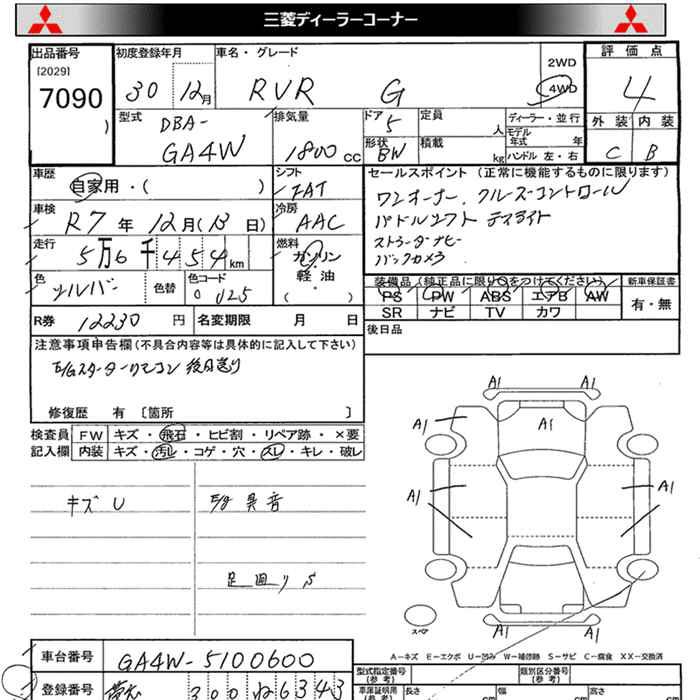 三菱ディーラーコーナー
出品番号 初度登録年月 車名・グレード 評価点
[2029]
7090
30 12月 RVR G 2WD 4WD 4
型式 DBA-
GA4W
排気量
1800 cc
ドア 5 定員 人
形状 BW 積載 kg
ディーラー・並行
モデル年式 年
ハンドル 左・右
外装 内装
C B
車歴
自家用・( )
シフト
FAT
セールスポイント(正常に機能するものに限ります)
ワンオーナー. クルーズコントロール
パドルシフト
バックカメラ
車検 R7年 12月(13日)
冷房 AAC
走行 5万6千454km
燃料 ガソリン
軽・油
・( )
色 シルバー 色替 色コード U25
装備品(純正品に限り○をつけてください) 新車保証書
PS PW ABS エアB AW
SR ナビ TV カワ
有・無
R券 12230円 名変期限 月 日
後日品
注意事項申告欄(不具合内容等は具体的に記入して下さい)
E/Gスターターリモコン 後日送り
修復歴 有 [箇所 ]
検査員 FW キズ・飛石・ヒビ割・リペア跡・×要
記入欄 内装 キズ・汚レ・コゲ・穴・スレ・キレ・破レ
キズ U E/g 異音
足廻り S
A1 A1
A1 A1 A1
A1 A1
A1 A1
スペア
A-キズ E-エクボ U-凹み W-補修跡 S-サビ C-腐食 XX-交換済
車台番号 GA4W-5100600
型式指定番号(参考) 類別区分番号(参考)
登録番号 300 ね6343
車庫証明用(参考) 長さ cm 幅 cm 高さ cm